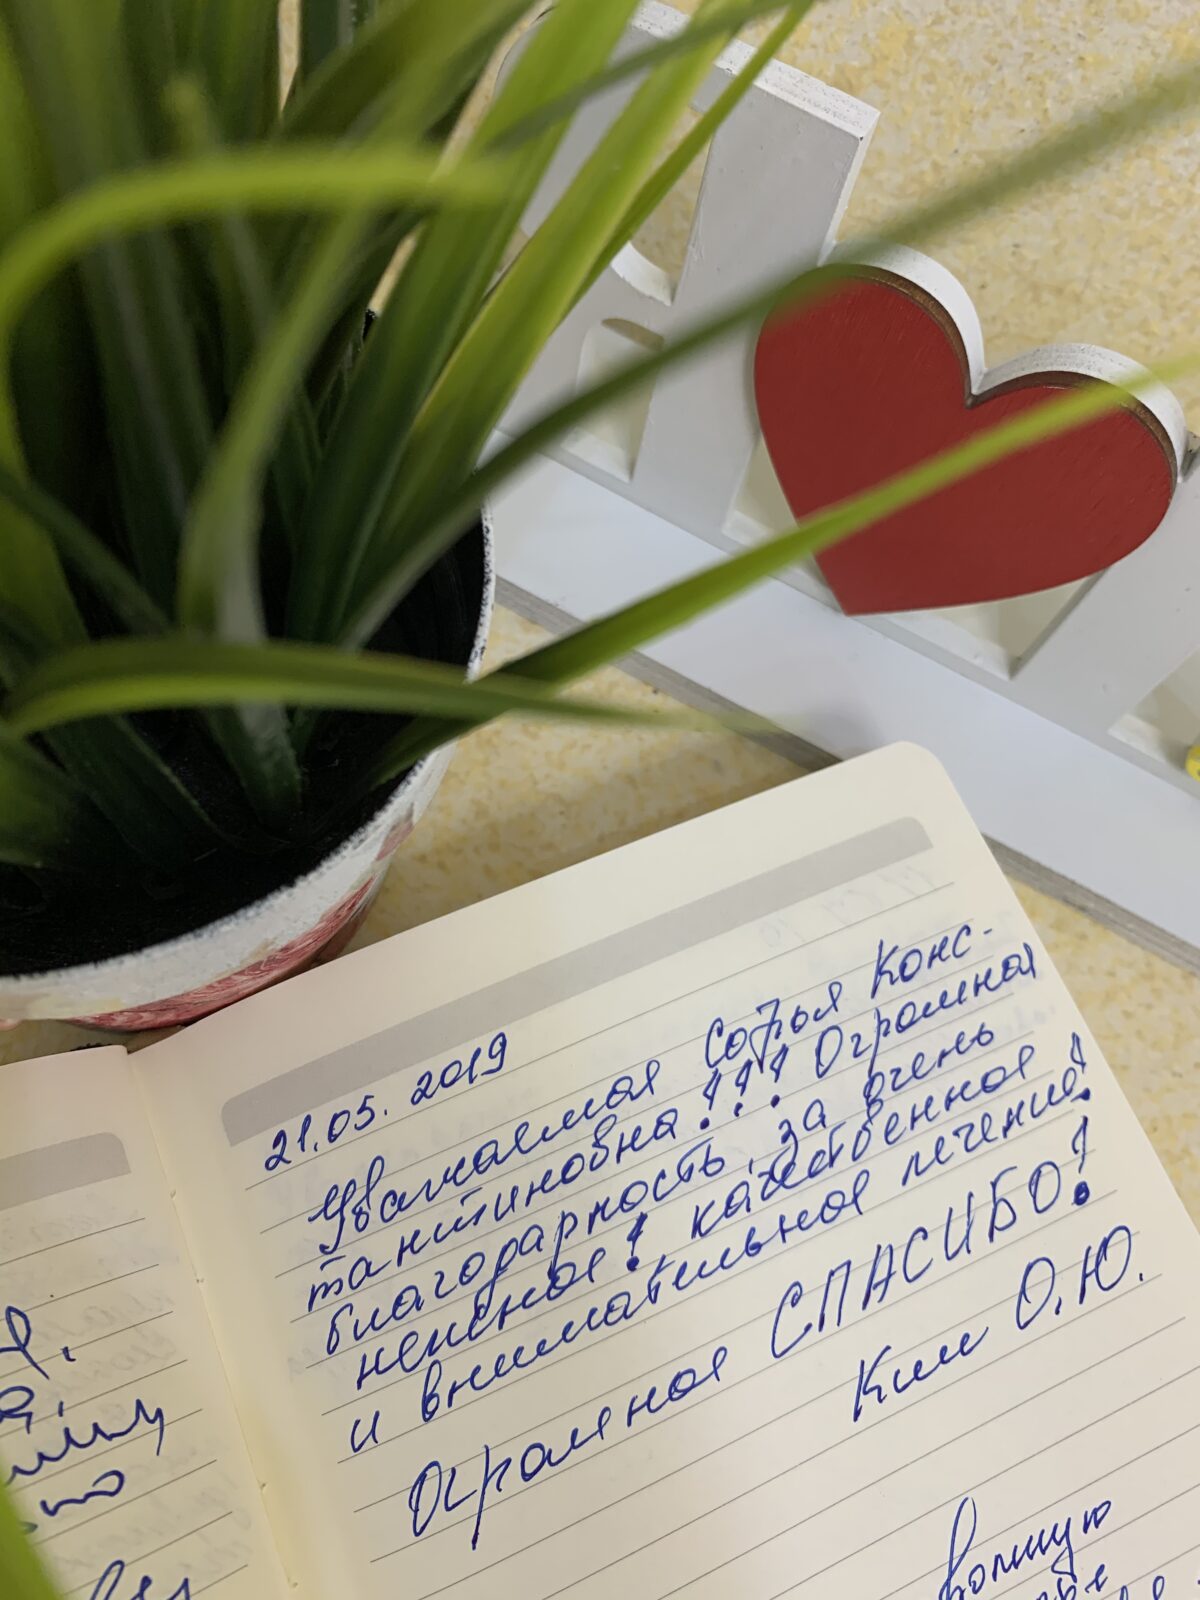 21.05.2019
Уважаемая Софья Конс-
тантиновна!!! Огромная
благодарность, за очень
нежное! качественное
и внимательное лечение!
Огромное СПАСИБО!
Ким О.Ю.